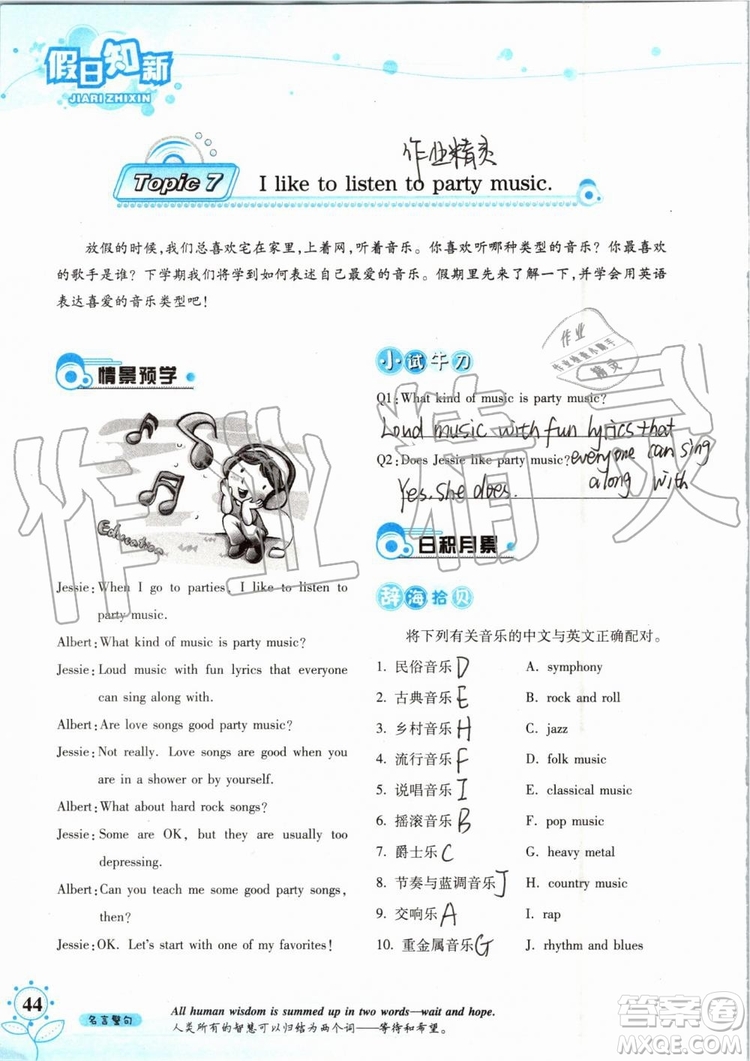 假日知新
JIARI ZHIXIN
作业精灵
Topic 7
I like to listen to party music.
放假的时候,我们总喜欢宅在家里,上着网,听着音乐。你喜欢听哪种类型的音乐?你最喜欢
的歌手是谁?下学期我们将学到如何表述自己最爱的音乐。假期里先来了解一下,并学会用英语
表达喜爱的音乐类型吧!
情景预学
Education
Jessie:When I go to parties, I like to listen to
party music.
Albert:What kind of music is party music?
Jessie:Loud music with fun lyrics that everyone
can sing along with.
Albert:Are love songs good party music?
Jessie:Not really. Love songs are good when you
are in a shower or by yourself.
Albert:What about hard rock songs?
Jessie:Some are OK, but they are usually too
depressing.
Albert:Can you teach me some good party songs,
then?
Jessie:OK. Let's start with one of my favorites!
小试牛刀
作业
精灵
Q1:What kind of music is party music?
Loud music with fun lyrics that
everyone can sing
along with
Q2:Does Jessie like party music?
Yes, she does.
日积月累
辞海拾贝
将下列有关音乐的中文与英文正确配对。
1. 民俗音乐 D A. symphony
2. 古典音乐 E B. rock and roll
3. 乡村音乐 H C. jazz
4. 流行音乐 F D. folk music
5. 说唱音乐 I E. classical music
6. 摇滚音乐 B F. pop music
7. 爵士乐 C G. heavy metal
8. 节奏与蓝调音乐 J H. country music
9. 交响乐 A I. rap
10. 重金属音乐 G J. rhythm and blues
44
名言警句
All human wisdom is summed up in two words—wait and hope.
人类所有的智慧可以归结为两个词——等待和希望。
作业精灵
答案圈
MXQE.COM